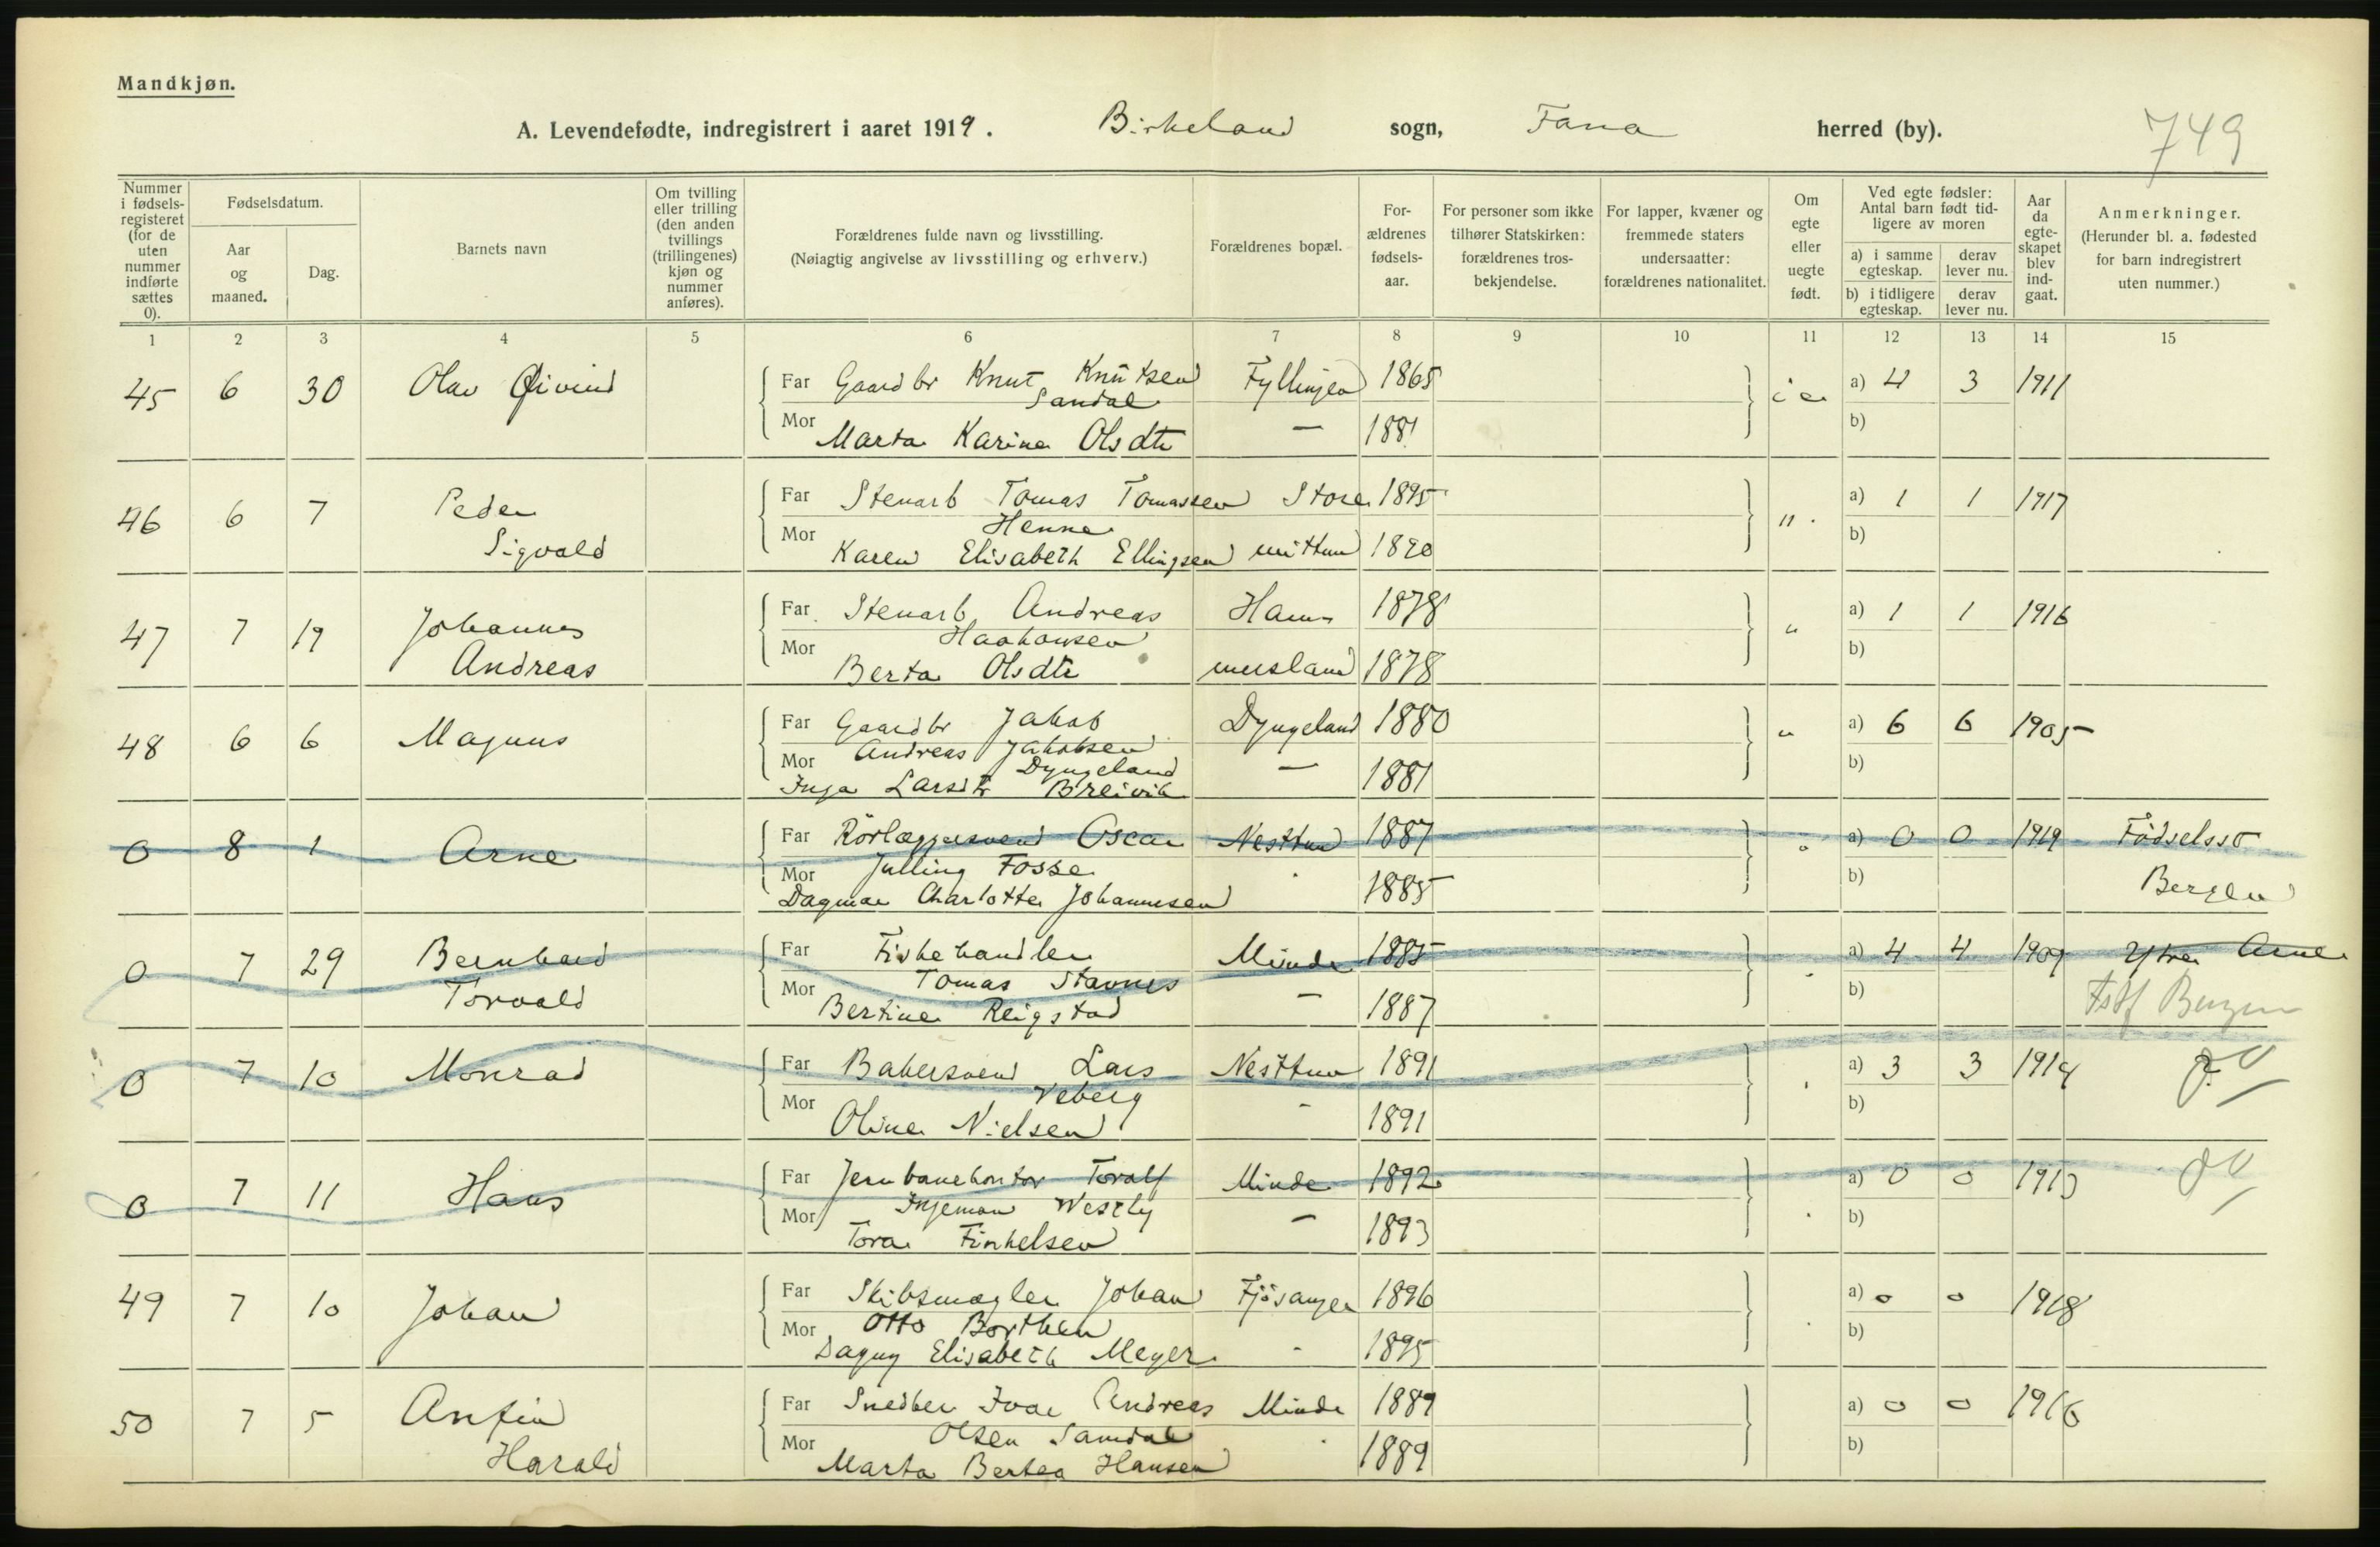 Mandkjøn.
A. Levendefødte, indregistrert i aaret 1919. Birkeland sogn, Fana herred (by). 749
Nummer i fødselsregisteret (for de uten nummer indførte sættes 0).
Fødselsdatum.
Aar og maaned.
Dag.
Barnets navn
Om tvilling eller trilling (den anden tvillings (trillingenes) kjøn og nummer anføres).
Forældrenes fulde navn og livsstilling.
(Nøiagtig angivelse av livsstilling og erhverv.)
Forældrenes bopæl.
Forældrenes fødselsaar.
For personer som ikke tilhører Statskirken: forældrenes trosbekjendelse.
For lapper, kvæner og fremmede staters undersaatter: forældrenes nationalitet.
Om egte eller uegte født.
Ved egte fødsler: Antal barn født tidligere av moren
a) i samme egteskap. derav lever nu.
b) i tidligere egteskap. derav lever nu.
Aar da egteskapet blev indgaat.
Anmerkninger.
(Herunder bl. a. fødested for barn indregistrert uten nummer.)
1 2 3 4 5 6 7 8 9 10 11 12 13 14 15
45 6 30 Olav Øivind Far Gaardbr Knut Knutsen Fyllingen 1865 a) 4 3 1911
Sandal
Mor Marta Karina Olsdtr — 1881 b)
46 6 7 Peder Far Stenarb Tomas Tomassen Store 1895 " a) 1 1 1917
Sigvald Henne
Mor Karen Elisabeth Ellingsen mittun 1890 b)
47 7 19 Johannes Far Stenarb Andreas Ham- 1878 " a) 1 1 1916
Andreas Haakonsen
Mor Berta Olsdtr mersland 1878 b)
48 6 6 Magnus Far Gaardbr Jakob Dyngeland 1880 " a) 6 6 1905
Andreas Jakobsen
Dyngeland
Mor Inga Larsdtr Breivik — 1881 b)
0 8 1 Arne Far Rörlæggersvend Oscar Nesttun 1887 a) 0 0 1919 Födselsst
Julling Fosse
Mor Dagmar Charlotte Johannesen 1885 b) Bergen
0 7 29 Bernhard Far Fiskehandler Minde 1885 a) 4 4 1909 Ytre Arne
Torvald Tomas Stavnes
Mor Bertine Reigstad — 1887 b) Bergen
0 7 10 Monrad Far Bakersvend Lars Nesttun 1891 a) 3 3 1914
Veberg
Mor Oline Nielsen - 1891 b)
0 7 11 Hans Far Jernbanekontor Toralf Minde 1892 a) 0 0 1913
Ingeman Westly
Mor Tora Finkelsen — 1893 b)
49 7 10 Johan Far Skibsmægler Johan Fjösanger 1896 a) 0 0 1918
Otto Borthen
Mor Dagny Elisabeth Meyer - 1895 b)
50 7 5 Anfin Far Snedker Ivar Andreas Minde 1889 a) 0 0 1916
Harald Olsen Samdal
Mor Marta Bertea Hansen 1889 b)